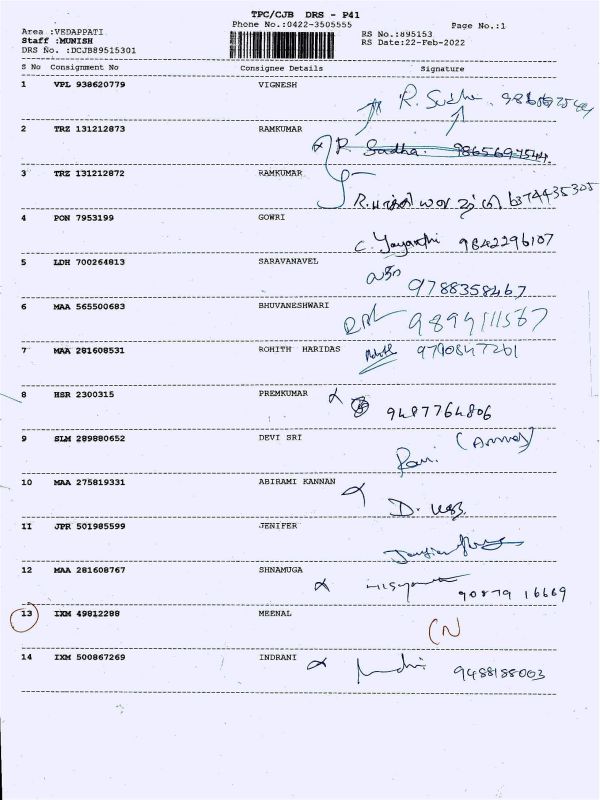 TPC/CJB DRS - P41
Phone No.:0422-3505555
Page No.:1
Area :VEDAPPATI
Staff :MUNISH
DRS No. :DCJB89515301
RS No.:895153
RS Date:22-Feb-2022
S No Consignment No Consignee Details Signature
1 VPL 938620779 VIGNESH
R. Sudha
2 TRZ 131212873 RAMKUMAR
R Sudha 9865697544
3 TRZ 131212872 RAMKUMAR
6374435305
4 PON 7953199 GOWRI
C. Jayanthi 9842296107
5 LDH 700264813 SARAVANAVEL
9788358467
6 MAA 565500683 BHUVANESHWARI
9894111567
7 MAA 281608531 ROHITH HARIDAS
9790847261
8 HSR 2300315 PREMKUMAR
9487764806
9 SLM 289880652 DEVI SRI
Ravi. (Amma)
10 MAA 275819331 ABIRAMI KANNAN
D.
11 JPR 501985599 JENIFER
12 MAA 281608767 SHNAMUGA
90879 16669
13 IXM 49812288 MEENAL
(N
14 IXM 500867269 INDRANI
9488188003